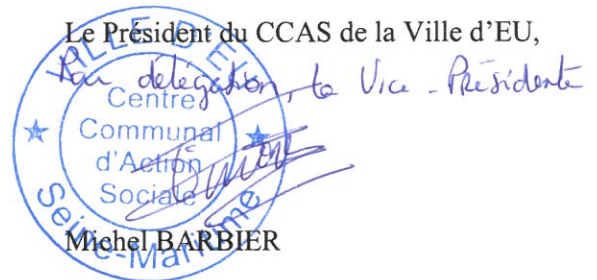 Le Président du CCAS de la Ville d’EU,
Par délégation, la Vice-Présidente
VILLE D'EU
Centre
Communal
d'Action
Sociale
Seine-Maritime
Michel BARBIER